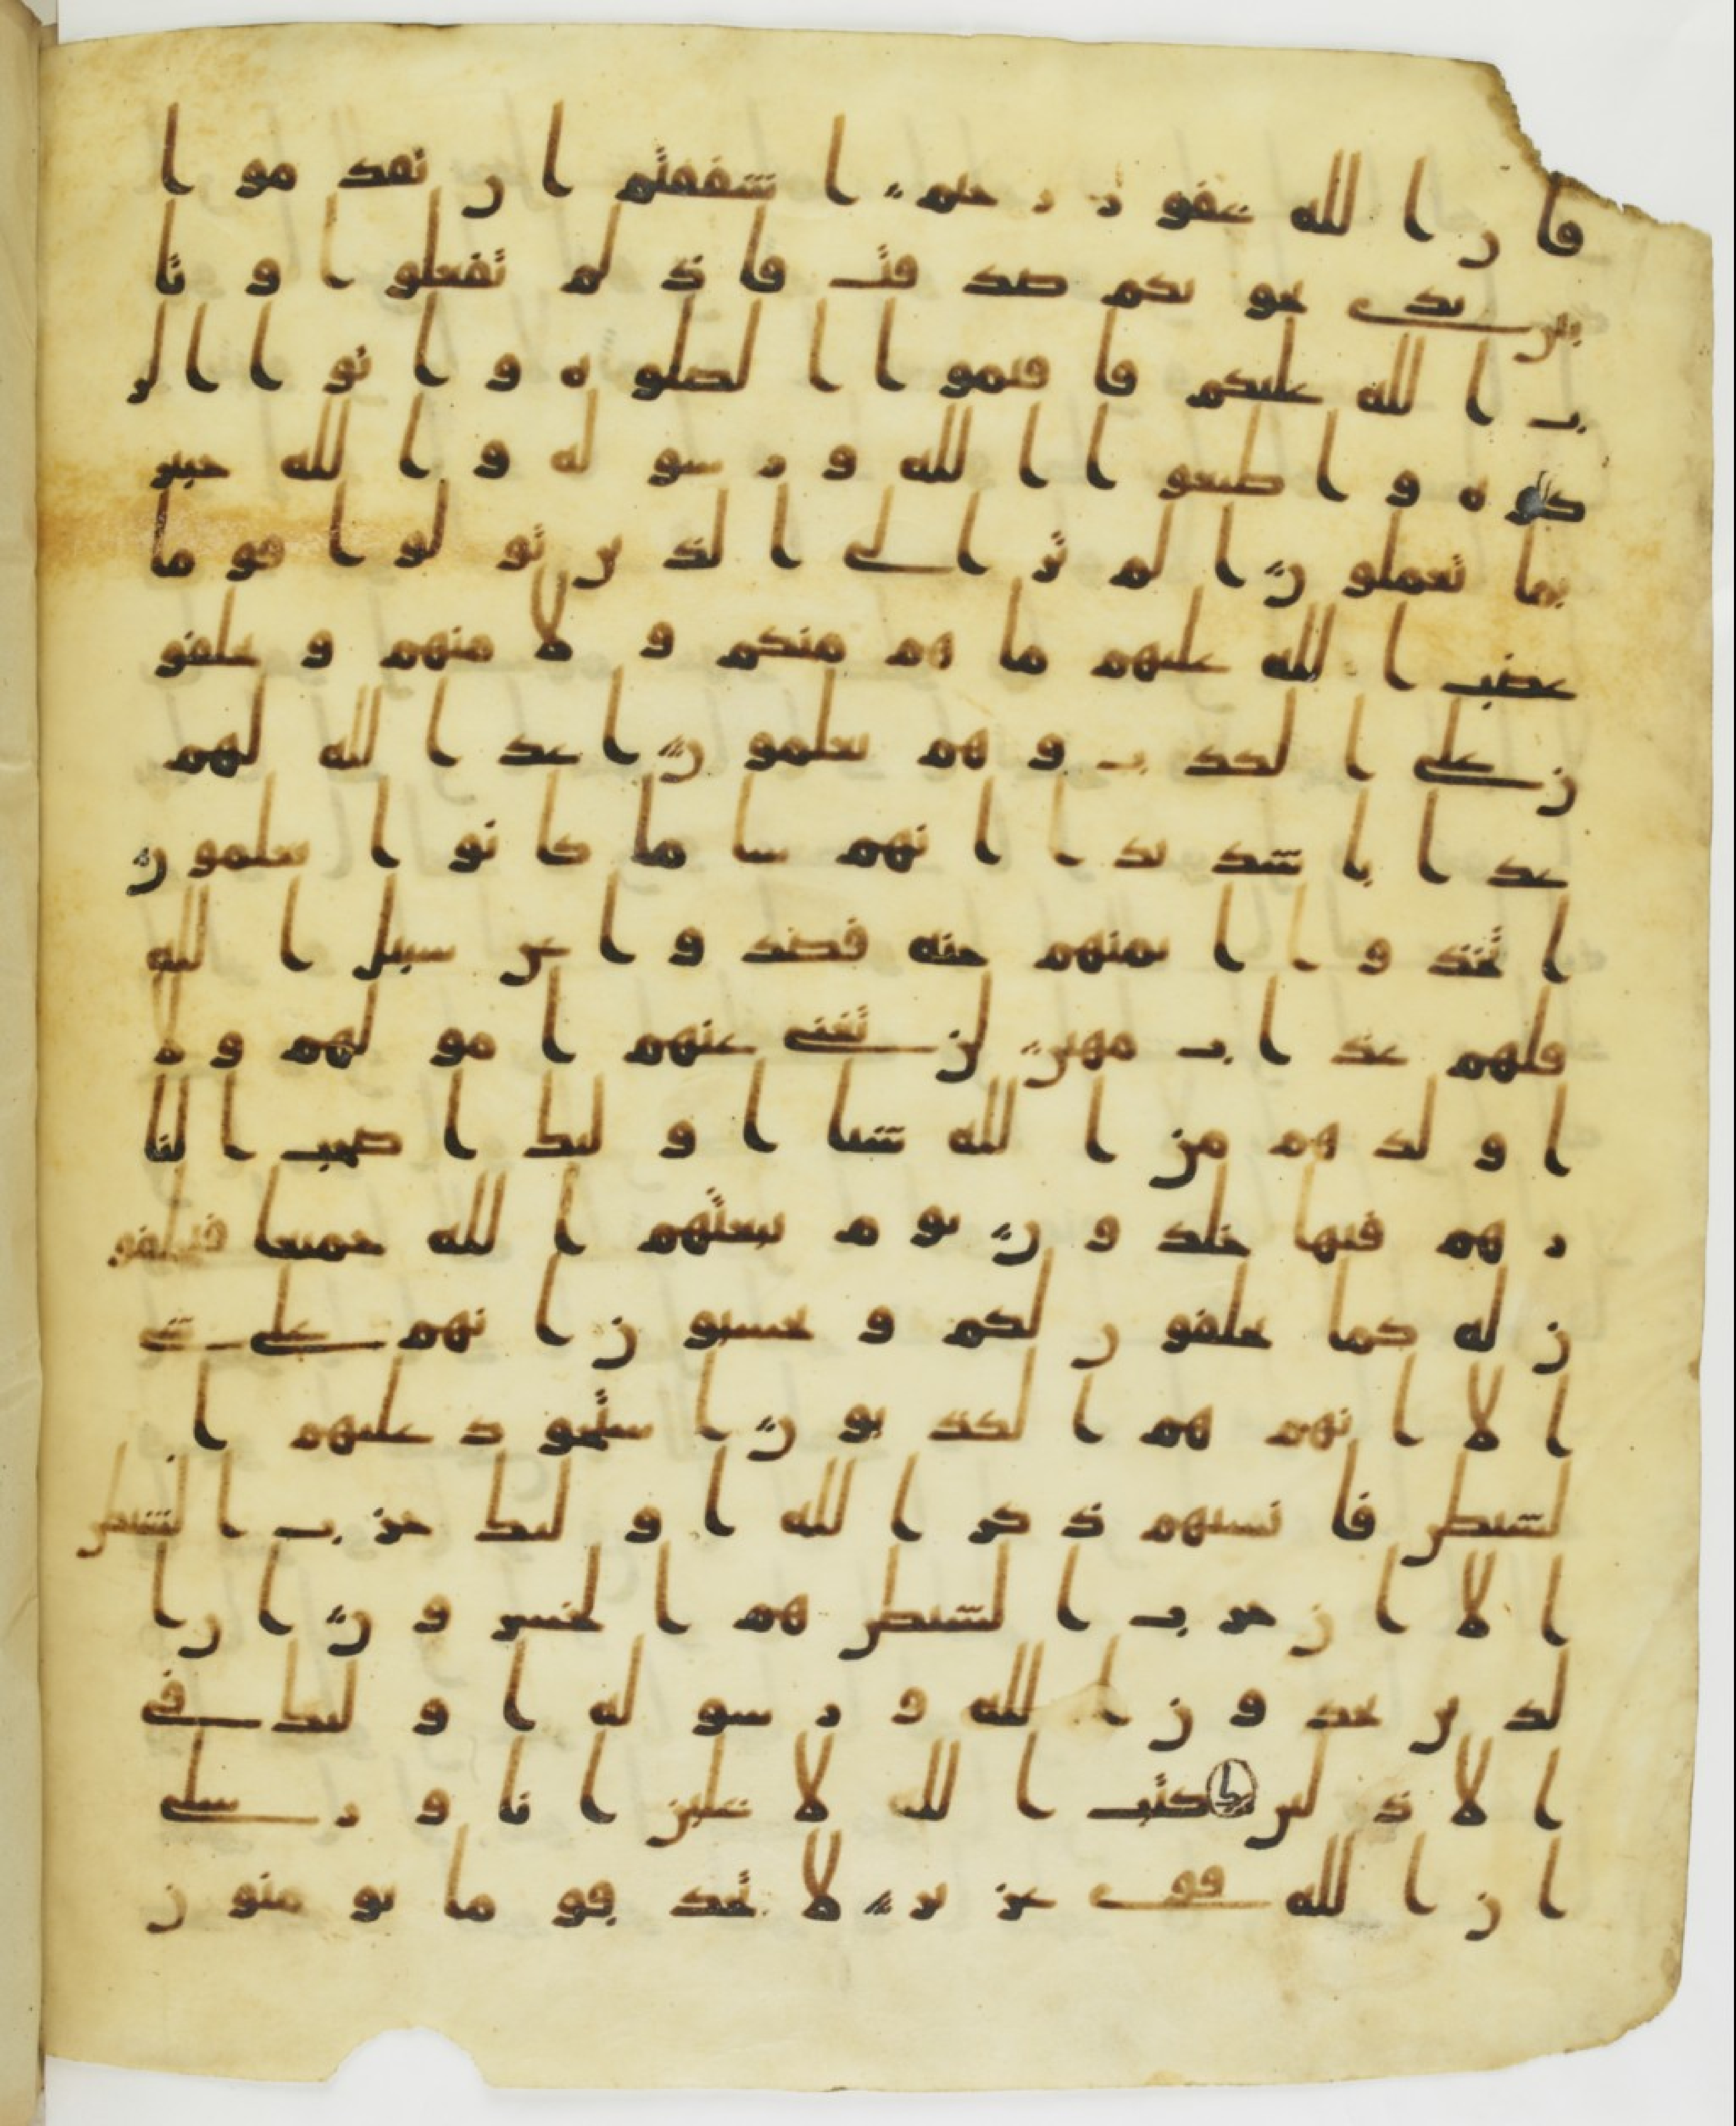 فان الله غفور رحيم اشفقتم ان تقدموا
بين يدى نجويكم صدقت فاذ لم تفعلوا وتا
ب الله عليكم فاقيموا الصلوه واتوا الز
كوه واطيعوا الله ورسوله والله خبير
بما تعملون الم تر الى الذين تولوا قوما
غضب الله عليهم ما هم منكم ولا منهم ويحلفو
ن على الكذب وهم يعلمون اعد الله لهم
عذابا شديدا انهم سا ما كانوا يعملون
اتخذوا ايمنهم جنه فصدوا عن سبيل الله
فلهم عذاب مهين لن تغنى عنهم امولهم ولا
اولدهم من الله شيا اوليك اصحب النا
ر هم فيها خلدون يوم يبعثهم الله جميعا فيحلفو
ن له كما يحلفون لكم ويحسبون انهم على شى
الا انهم هم الكذبون استحوذ عليهم ا
لشيطن فانسيهم ذكر الله اوليك حزب الشيطن
الا ان حزب الشيطن هم الخسرون ان ا
لذين يحدون الله ورسوله اوليك فى
الاذلين كتب الله لاغلبن انا ورسلى
ان الله قوى عزيز لا تجد قوما يومنون